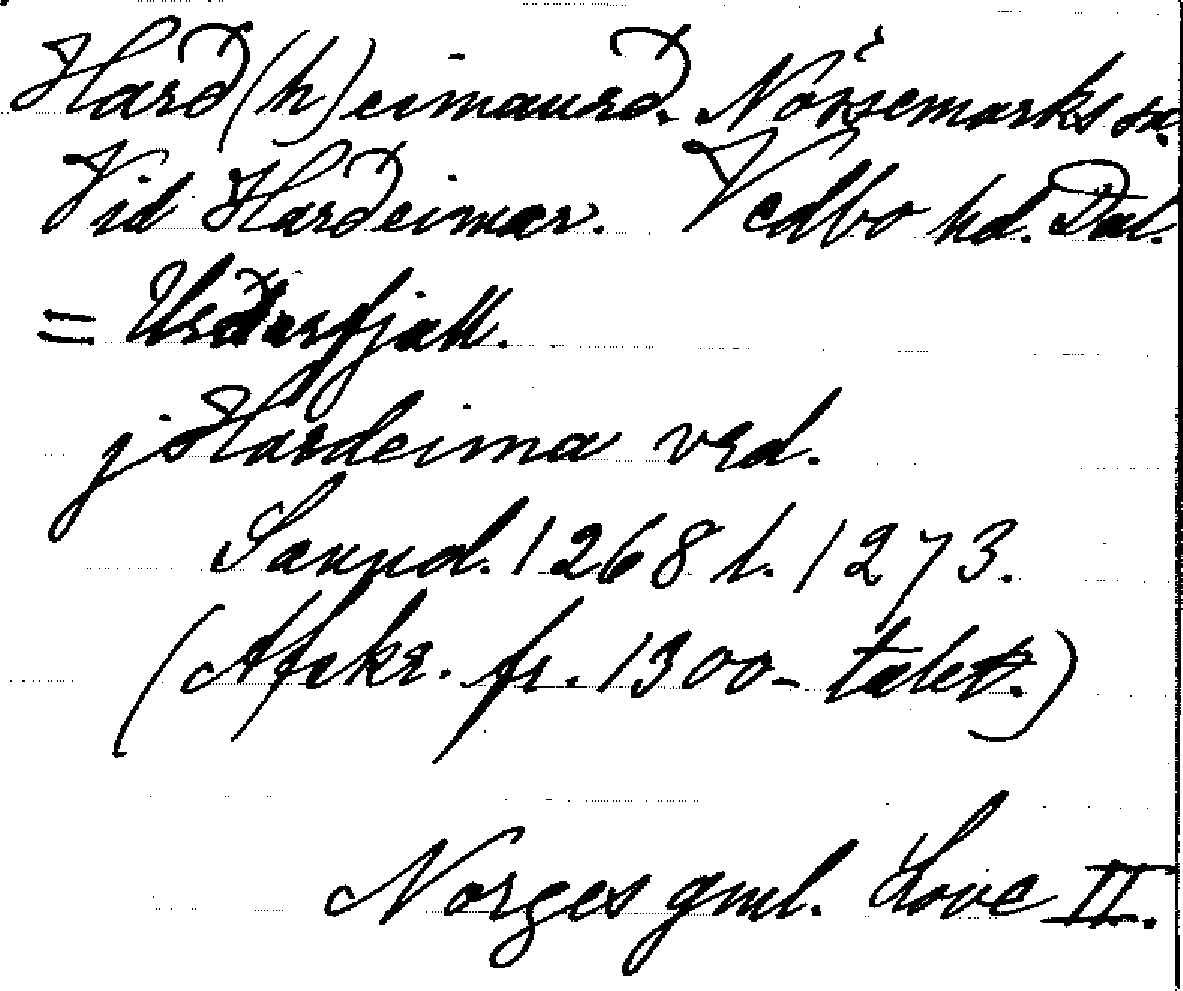 Harð(h)eimaurð. Nössemarks sn.
Vid Harðeimar. Vedbo hd. Dal.
= Urðarfjäll.
j Hardeima vrd.
Sannol. 1268 l. 1273.
(Afskr. fr. 1300-talet.)
Norges gml. Love II.